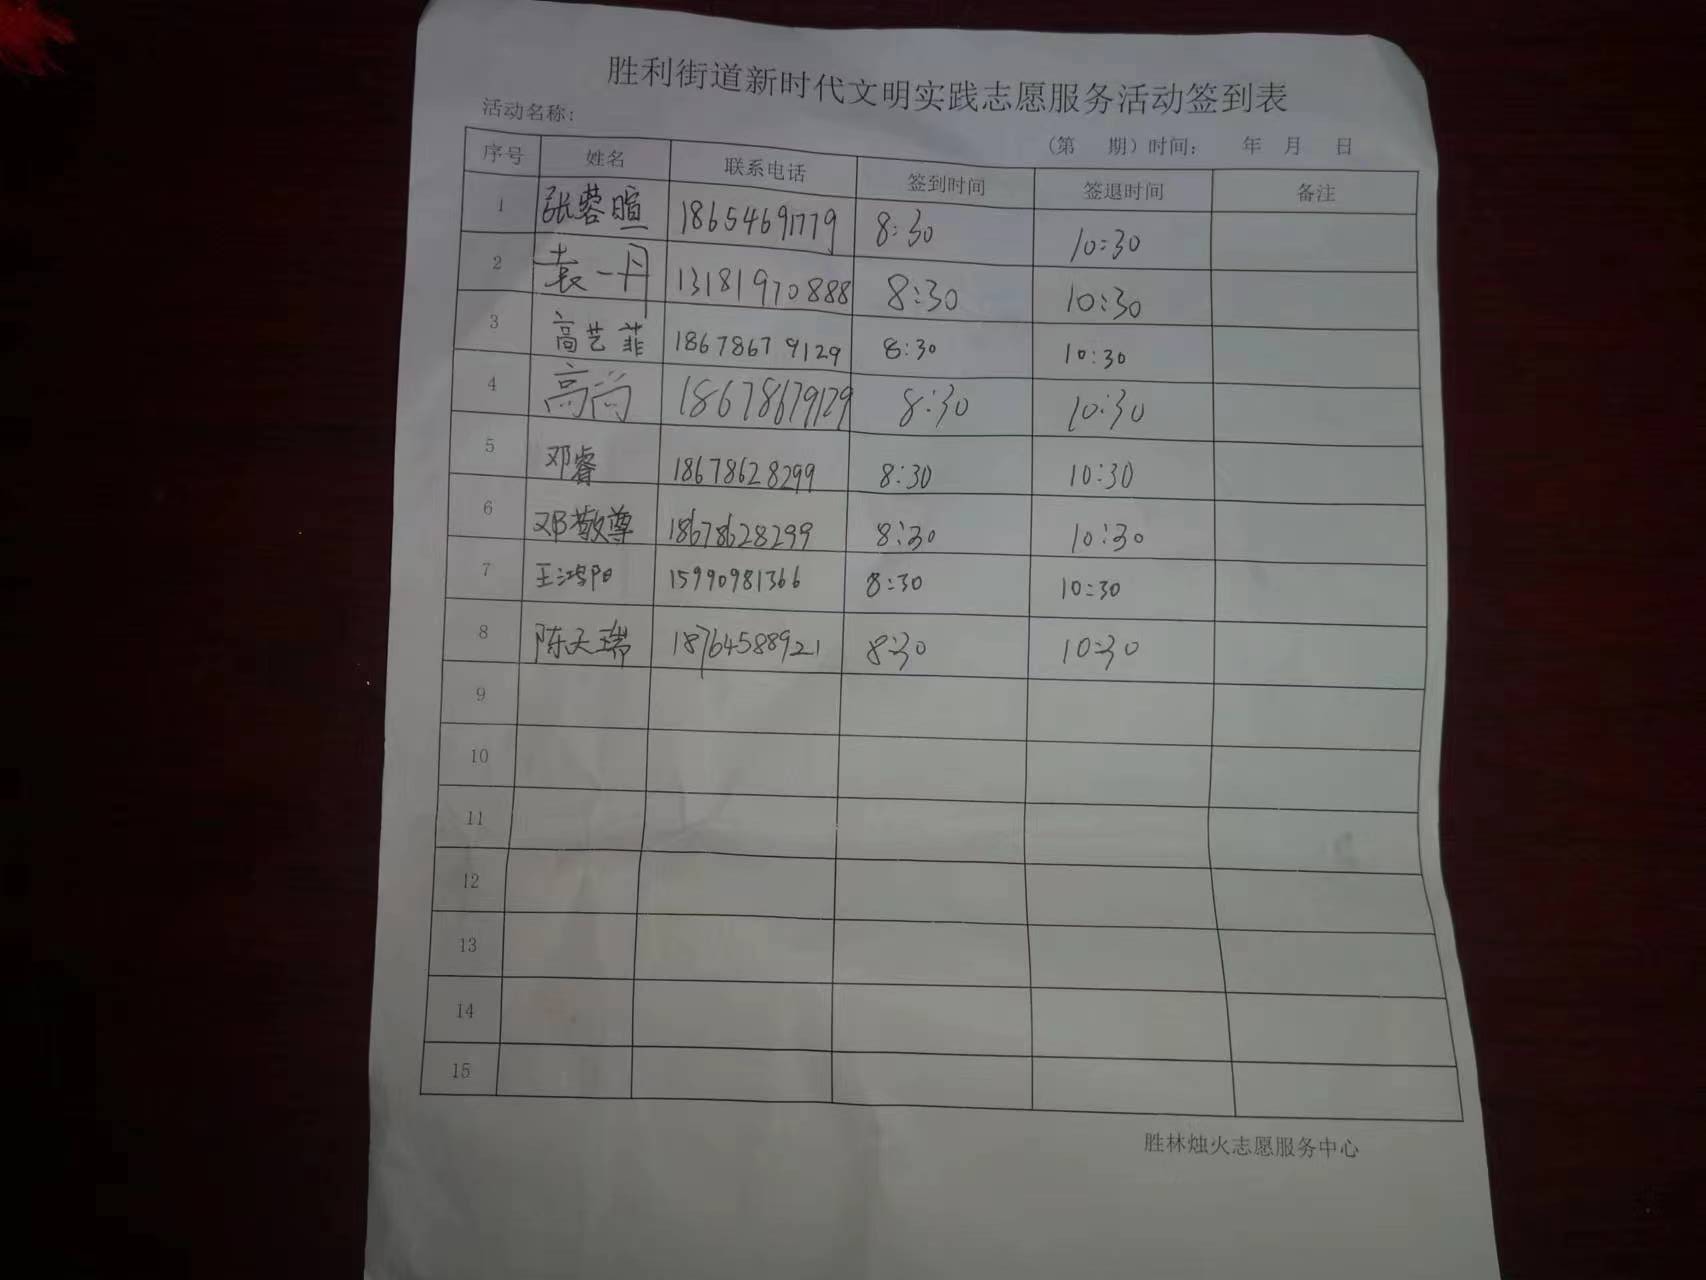 胜利街道新时代文明实践志愿服务活动签到表
活动名称:
(第 期)时间: 年 月 日
序号 姓名 联系电话 签到时间 签退时间 备注
1 张蓉暄 18654691779 8:30 10:30
2 袁一丹 13181970888 8:30 10:30
3 高艺菲 18678679129 8:30 10:30
4 高尚 18678679129 8:30 10:30
5 邓睿 18678628299 8:30 10:30
6 邓敬尊 18678628299 8:30 10:30
7 王鸿阳 15990981366 8:30 10:30
8 陈天瑞 18764588921 8:30 10:30
9
10
11
12
13
14
15
胜林烛火志愿服务中心